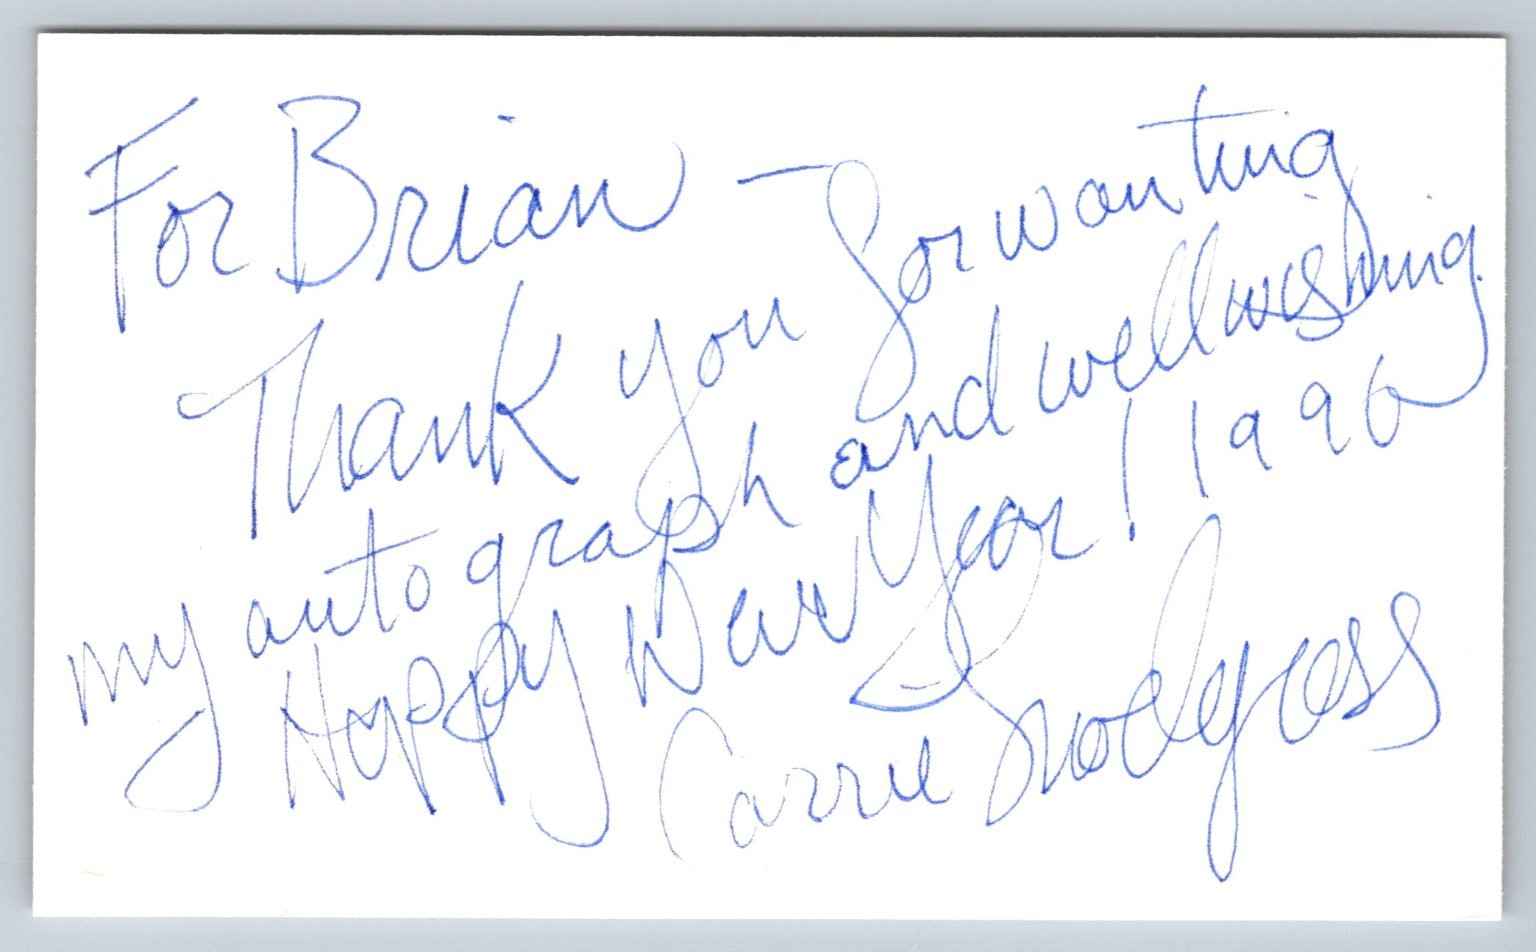 For Brian —
Thank you for wanting
my autograph and wellwishing
Happy New Year! 1996
Carrie Snodgress